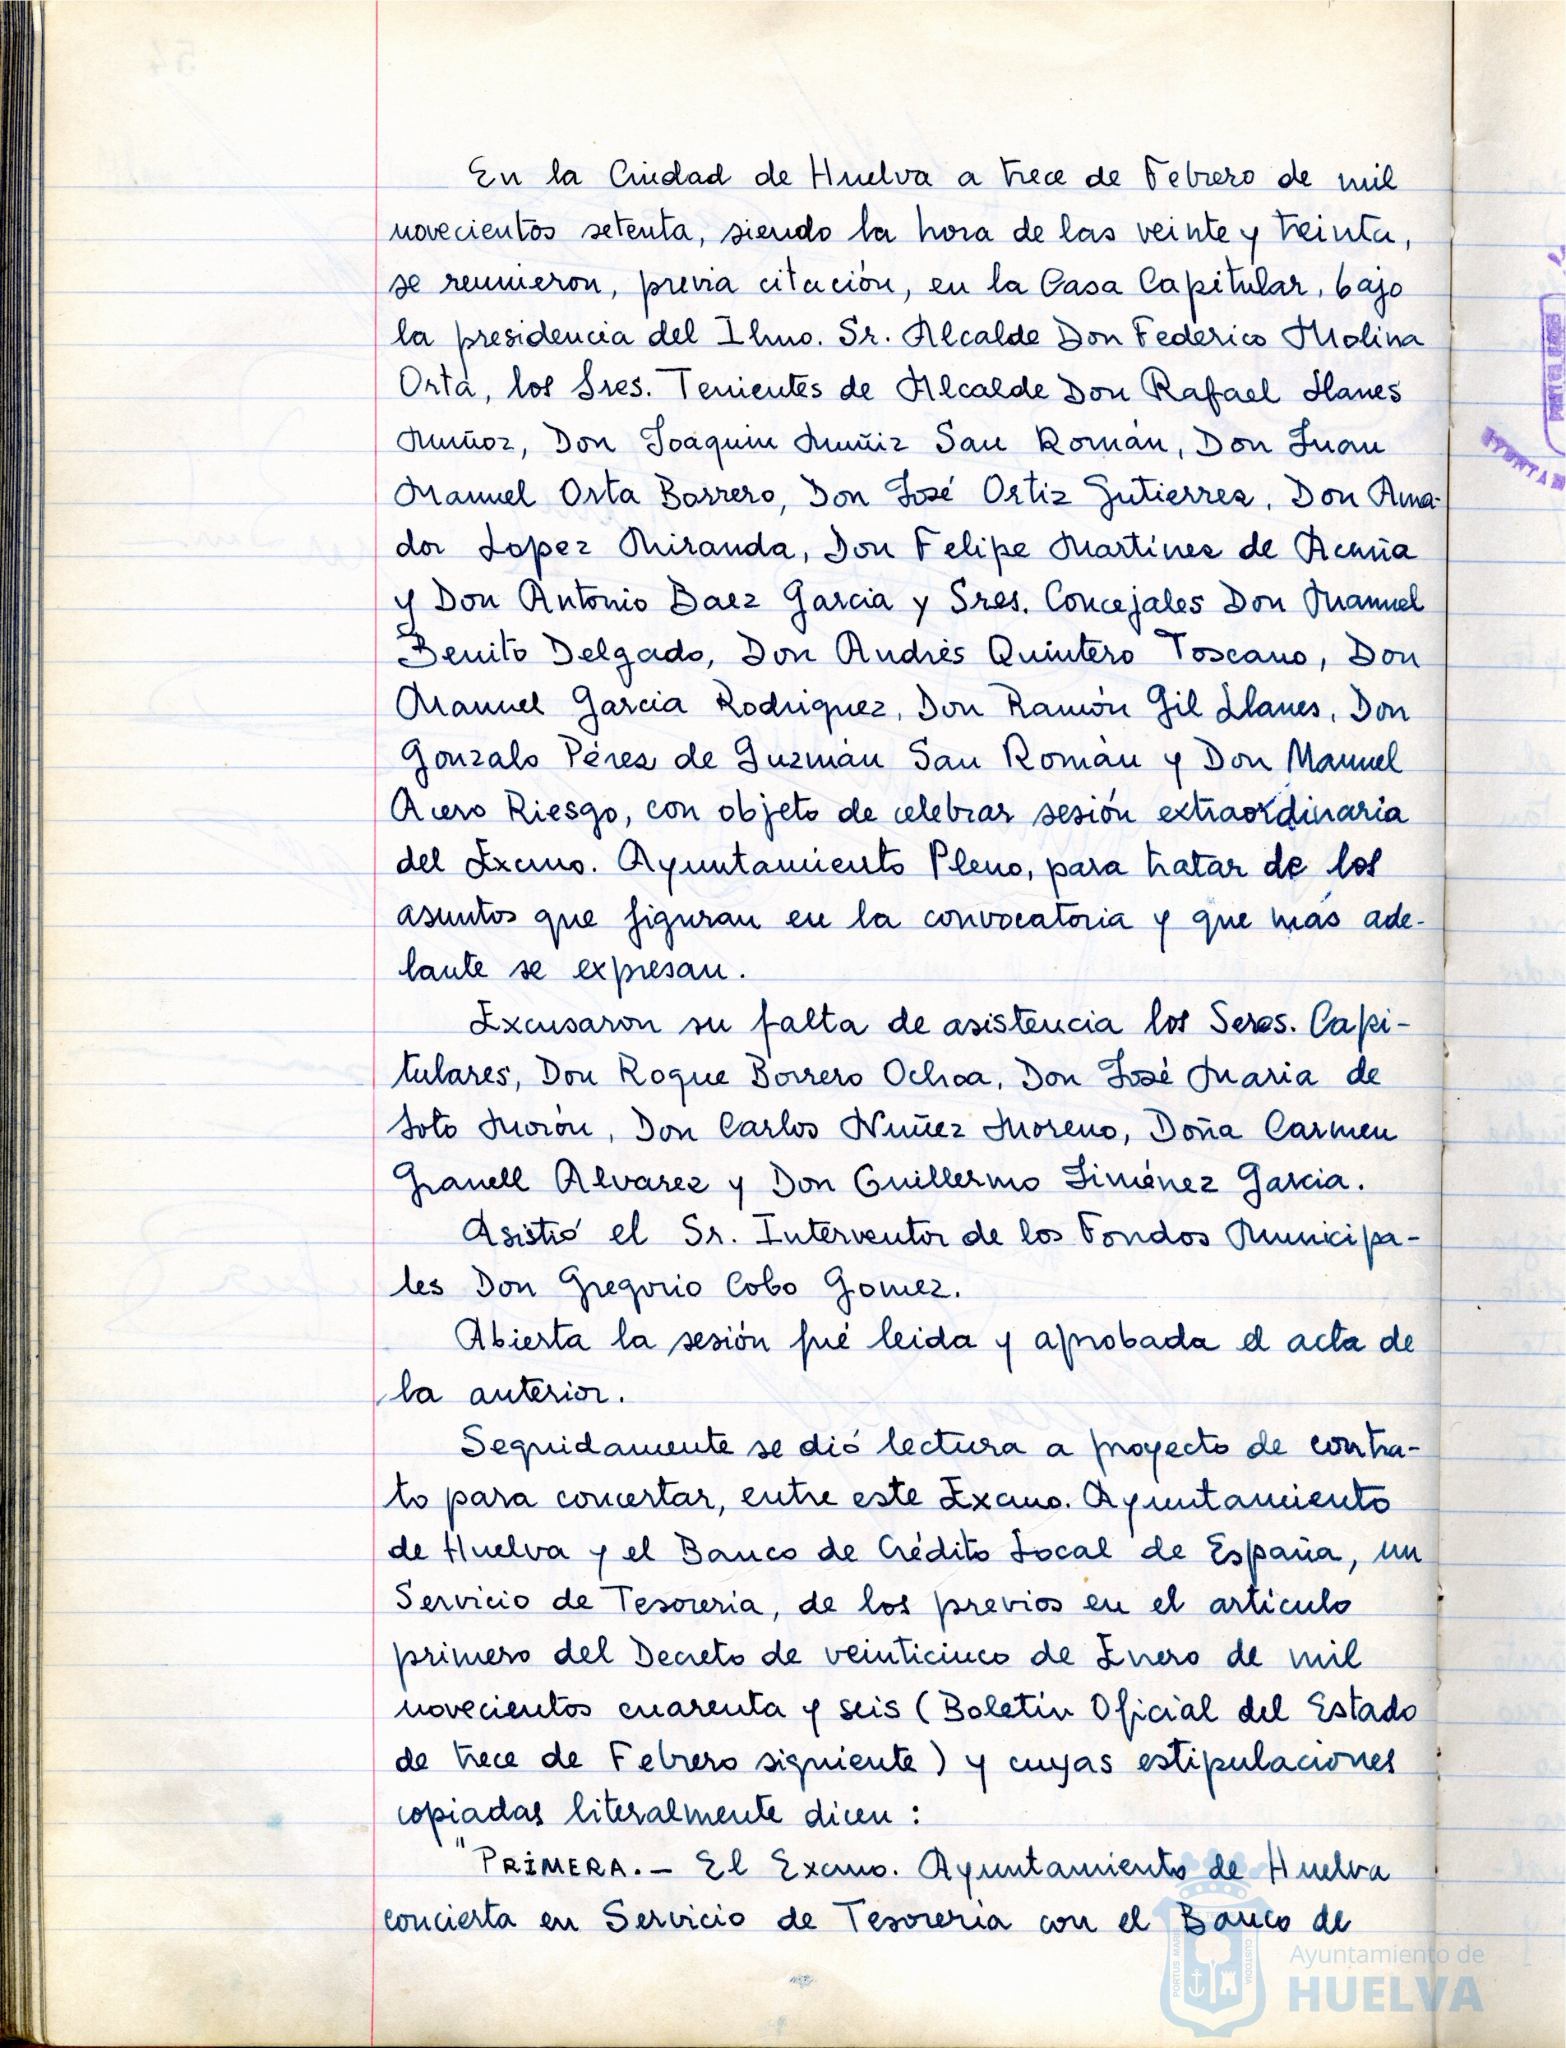 En la Ciudad de Huelva a trece de Febrero de mil
novecientos setenta, siendo la hora de las veinte y treinta,
se reunieron, previa citación, en la Casa Capitular, bajo
la presidencia del Ilmo. Sr. Alcalde Don Federico Molina
Orta, los Sres. Tenientes de Alcalde Don Rafael Llanes
Muñoz, Don Joaquin Muñiz San Román, Don Juan
Manuel Orta Borrero, Don José Ortiz Gutierrez, Don Ama-
dor Lopez Miranda, Don Felipe Martinez de Acuña
y Don Antonio Baez Garcia y Sres. Concejales Don Manuel
Benito Delgado, Don Andrés Quintero Toscano, Don
Manuel Garcia Rodriguez, Don Ramón Gil Llanes, Don
Gonzalo Pérez de Guzmán San Román y Don Manuel
Acero Riesgo, con objeto de celebrar sesión extraordinaria
del Excmo. Ayuntamiento Pleno, para tratar de los
asuntos que figuran en la convocatoria y que más ade-
lante se expresan.
Excusaron su falta de asistencia los Seres. Capi-
tulares, Don Roque Borrero Ochoa, Don José Maria de
Soto Morón, Don Carlos Nuñez Moreno, Doña Carmen
Granell Alvarez y Don Guillermo Jiménez Garcia.
Asistió el Sr. Interventor de los Fondos Municipa-
les Don Gregorio Cobo Gomez.
Abierta la sesión fué leida y aprobada el acta de
la anterior.
Seguidamente se dió lectura a proyecto de contra-
to para concertar, entre este Excmo. Ayuntamiento
de Huelva y el Banco de Crédito Local de España, un
Servicio de Tesoreria, de los previos en el articulo
primero del Decreto de veinticinco de Enero de mil
novecientos cuarenta y seis (Boletin Oficial del Estado
de trece de Febrero siguiente) y cuyas estipulaciones
copiadas literalmente dicen:
"PRIMERA.- El Excmo. Ayuntamiento de Huelva
concierta en Servicio de Tesoreria con el Banco de
Ayuntamiento de
HUELVA